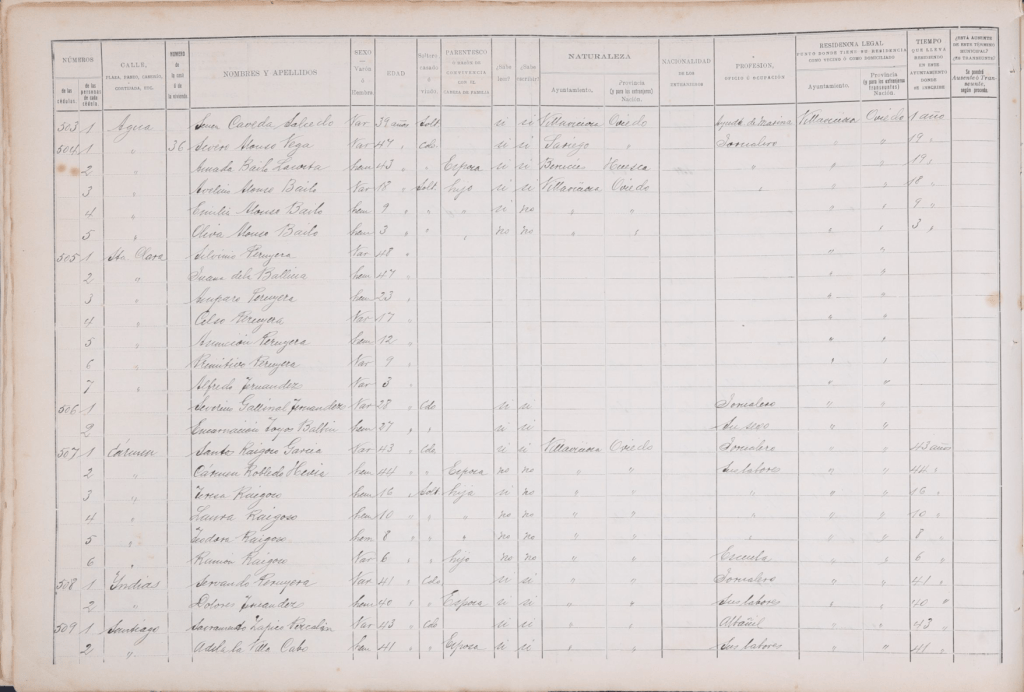 NÚMEROS
de las cédulas.
de las personas de cada cédula
CALLE, PLAZA, PASEO, CASERÍO, CORTIJADA, ETC.
NÚMERO de la casa ó de la vivienda
NOMBRES Y APELLIDOS
SEXO Varón ó Hembra.
EDAD
Soltero, casado ó viudo
PARENTESCO Ó RAZÓN DE CONVIVENCIA CON EL CABEZA DE FAMILIA
¿Sabe leer?
¿Sabe escribir?
NATURALEZA
Ayuntamiento.
Provincia (y para los extranjeros) Nación.
NACIONALIDAD DE LOS EXTRANJEROS
PROFESIÓN, OFICIO Ú OCUPACIÓN
RESIDENCIA LEGAL
Ayuntamiento.
Provincia (y para los extranjeros transeuntes) Nación.
TIEMPO QUE LLEVA RESIDIENDO EN ESTE AYUNTAMIENTO DONDE SE INSCRIBE
503 1 Agua Caveda, Salcedo Var 39 años Solt si si Villaviciosa Oviedo Ayudte de Marina Villaviciosa Oviedo 1 año
504 1 " 36 Alonso Vega Var 47 " Cdo si si Sariego " Jornalero " " 19 "
2 " Amada Bailo hem 43 " " Esposa si si Huesca " " 19 "
3 " Avelino Alonso Bailo Var 18 " Solt hijo si si Villaviciosa Oviedo " " " 18 "
4 " Emilia Alonso Bailo hem 9 " " " si no " " " " 9 "
5 " Oliva Alonso Bailo hem 3 " " " no no " " " " 3 "
505 1 Sta Clara Silvino Peruyera Var 48 " " "
2 " Juana dela Ballina hem 47 " " "
3 " Amparo Peruyera hem 23 " " "
4 " Celso Peruyera Var 17 " " "
5 " Asunción Peruyera hem 12 " " "
6 " Primitivo Peruyera Var 9 " " "
7 " Alfredo Fernandez Var 3 " "
506 1 Fernandez Var 28 " Cdo si si Jornalero " "
2 " Encarnación Hem 27 " " si si Su sexo " "
507 1 Cármen Santos Raigoso Garcia Var 43 " Cdo si si Villaviciosa Oviedo Jornalero " " 43 años
2 " Cármen Robledo Hem 44 " " Esposa no no " " Sus labores " " 44 "
3 " Teresa Raigoso hem 16 " Solt hija si no " " " " 16 "
4 " Laura Raigoso hem 10 " " " no no " " " " 10 "
5 " Raigoso hem 8 " " " no no " " " " 8 "
6 " Ramón Raigoso Var 6 " " hijo no no " " Escuela " " 6 "
508 1 Yndias Servando Peruyera Var 41 " Cdo si si " " Jornalero " " 41 "
2 " Dolores Fernandez hem 40 " " Esposa si si " " Sus labores " " 40 "
509 1 Santiago Sacramento Var 43 " Cdo si si " " Albañil " " 43 "
2 " Adela la Villa Cabo hem 41 " Esposa si si " " Sus labores " " 41 "